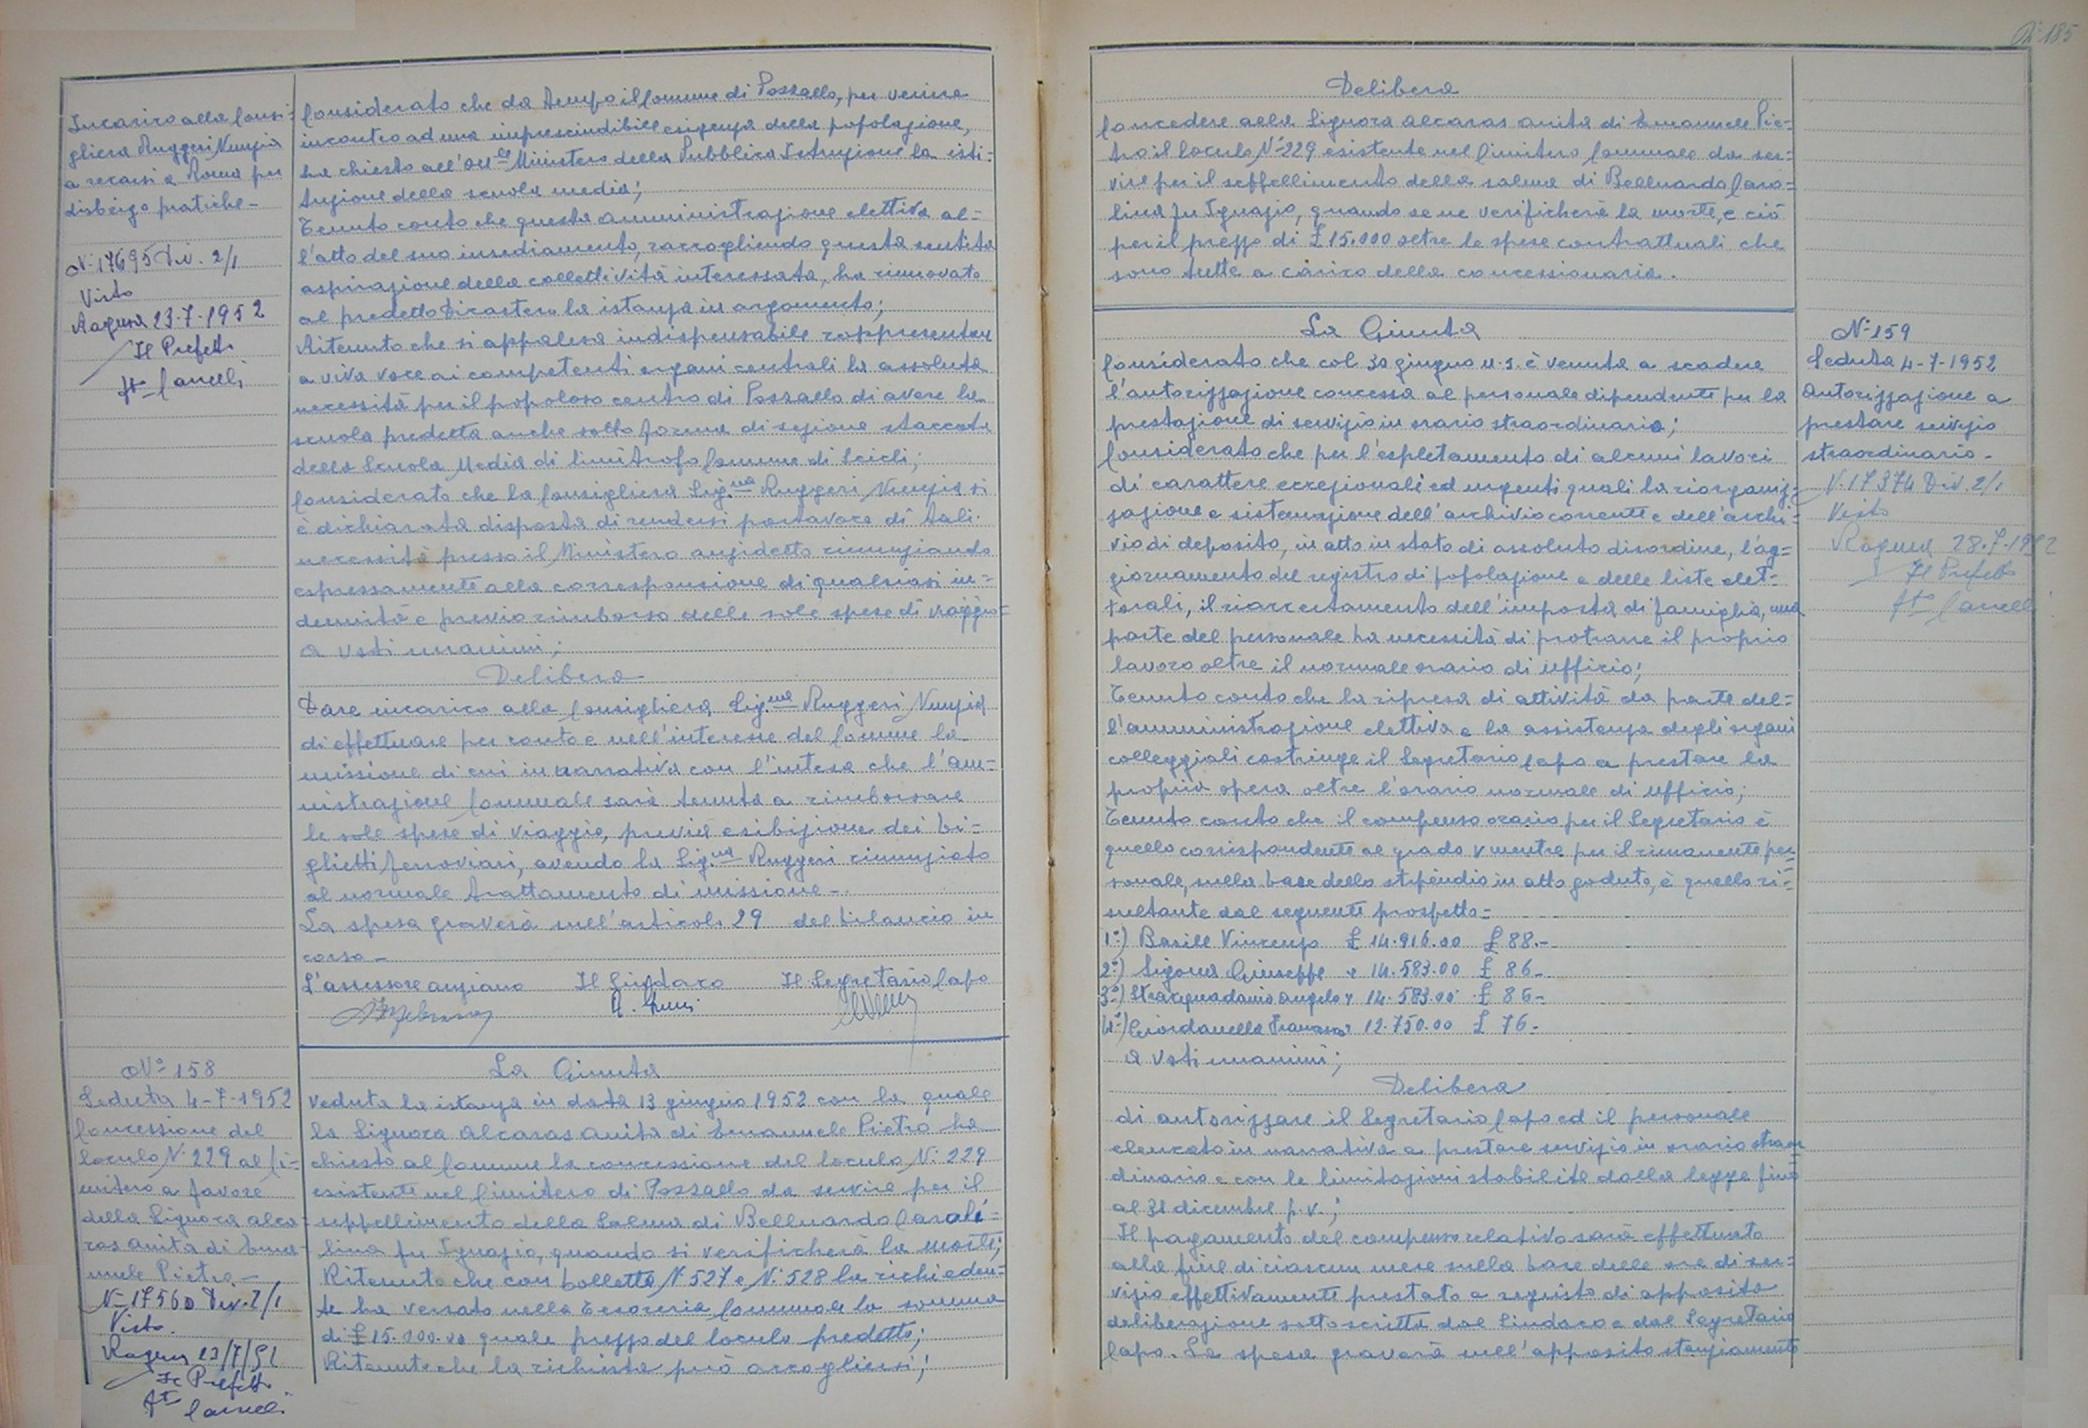 Incarico alla Consi=
gliera Ruggeri Nunzia
a recarsi a Roma per
disbrigo pratiche-
N. 17695 Div. 2/1
Visto
Ragusa 23-7-1952
Il Prefetto
Fto
Considerato che da tempo il Comune di Pozzallo, per venire
incontro ad una imprescindibile esigenza della popolazione,
ha chiesto all'On.le Ministero della Pubblica Istruzione la isti-
tuzione della scuola media;
Tenuto conto che questa amministrazione elettiva al=
l'atto del suo insediamento, raccogliendo questa sentita
aspirazione della collettività interessata, ha rinnovato
al predetto Dicastero la istanza in argomento;
Ritenuto che si appalesa indispensabile rappresentare
a viva voce ai competenti organi centrali la assoluta
necessità per il popoloso centro di Pozzallo di avere la
scuola predetta anche sotto forma di sezione staccata
della Scuola Media di limitrofo Comune di Scicli;
Considerato che la Consigliera Sig.na Ruggeri Nunzia si
è dichiarata disposta di rendersi portavoce di tali
necessità presso il Ministero anzidetto rinunziando
espressamente alla corresponsione di qualsiasi in=
dennità e previo rimborso delle sole spese di viaggio=
A voti unanimi;
Delibera
Dare incarico alla Consigliera Sig.na Ruggeri Nunzia
di effettuare per conto e nell'interesse del Comune la
missione di cui in narrativa con l'intesa che l'am=
nistrazione Comunale sarà tenuta a rimborsare
le sole spese di viaggio, previa esibizione dei bi=
glietti ferroviari, avendo la Sig.na Ruggeri rinunziato
al normale trattamento di missione-.
La spesa graverà sull'articolo 29 del bilancio in
corso-
L'assessore anziano Il Sindaco Il Segretario Capo
N° 158
Seduta 4-7-1952
Concessione del
loculo N. 229 al Ci=
mitero a favore
della Signora Alca=
ras Anita di Ema=
nuele Pietro-
N- 17560 Div. 2/1
Visto.
Ragusa 23/7/52
Il Prefetto
Fto
La Giunta
Veduta la istanza in data 13 giugno 1952 con la quale
la Signora Alcaras Anita di Emanuele Pietro ha
chiesto al Comune la concessione del loculo N. 229
esistente nel Cimitero di Pozzallo da servire per il
seppellimento della Salma di Belluardo Caroli=
lina fu Ignazio, quando si verificherà la morte;
Ritenuto che con bolletta N 527 e N. 528 la richieden=
te ha versato nella Tesoreria Comunale la somma
di £ 15.000.00 quale prezzo del loculo predetto;
Ritenuto che la richiesta può accogliersi;
N: 185
Delibera
Concedere alla Signora Alcaras Anita di Emanuele Pie=
tro il loculo N° 229 esistente nel Cimitero Comunale da ser=
vire per il seppellimento della salma di Belluardo Caro=
lina fu Ignazio, quando se ne verificherà la morte, e ciò
per il prezzo di £ 15.000 oltre le spese contrattuali che
sono tutte a carico della concessionaria.
La Giunta
Considerato che col 30 giugno u.s. è venuta a scadere
l'autorizzazione concessa al personale dipendente per la
prestazione di servizio in orario straordinario;
Considerato che per l'espletamento di alcuni lavori
di carattere eccezionali ed urgenti quali la riorganiz-
zazione e sistemazione dell'archivio corrente e dell'archi=
vio di deposito, in atto in stato di assoluto disordine, l'ag=
giornamento del registro di popolazione e delle liste elet=
torali, il riaccertamento dell'imposta di famiglia, una
parte del personale ha necessità di protrarre il proprio
lavoro oltre il normale orario di ufficio;
Tenuto conto che la ripresa di attività da parte del=
l'amministrazione elettiva e la assistenza degli organi
colleggiali costringe il Segretario Capo a prestare la
propria opera oltre l'orario normale di ufficio;
Tenuto conto che il compenso orario per il Segretario è
quello corrispondente al grado V mentre per il rimanente per=
sonale, sulla base dello stipendio in atto goduto, è quello ri=
sultante dal seguente prospetto=
1°) Basile Vincenzo £ 14.916.00 £ 88.-
2°) Sigona Giuseppe " 14.583.00 £ 86-
3°) Stracquadanio Angelo " 14.583.00 £ 86-
4°) Giordanella Francesco 12.750.00 £ 76-
A voti unanimi;
Delibera
di autorizzare il Segretario Capo ed il personale
elencato in narrativa a prestare servizio in orario straor
dinario e con le limitazioni stabilite dalla legge fino
al 31 dicembre p.v.;
Il pagamento del compenso relativo sarà effettuato
alla fine di ciascun mese sulla base delle ore di ser=
vizio effettivamente prestato a seguito di apposita
deliberazione sottoscritta dal Sindaco e dal Segretario
Capo. La spesa graverà sull'apposito stanziamento
N° 159
Seduta 4-7-1952
Autorizzazione a
prestare servizio
straordinario-
N. 17374 Div. 2/1
Visto
Ragusa 28.7.1952
Il Prefetto
Fto